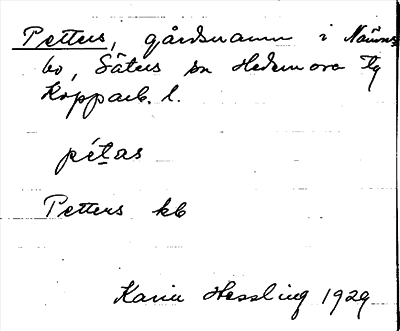 Petters, gårdsnamn i Nämns-
bo, Säters sn Hedemora tg
Kopparb. l.
pétas
Petters kb
Karin Hessling 1929